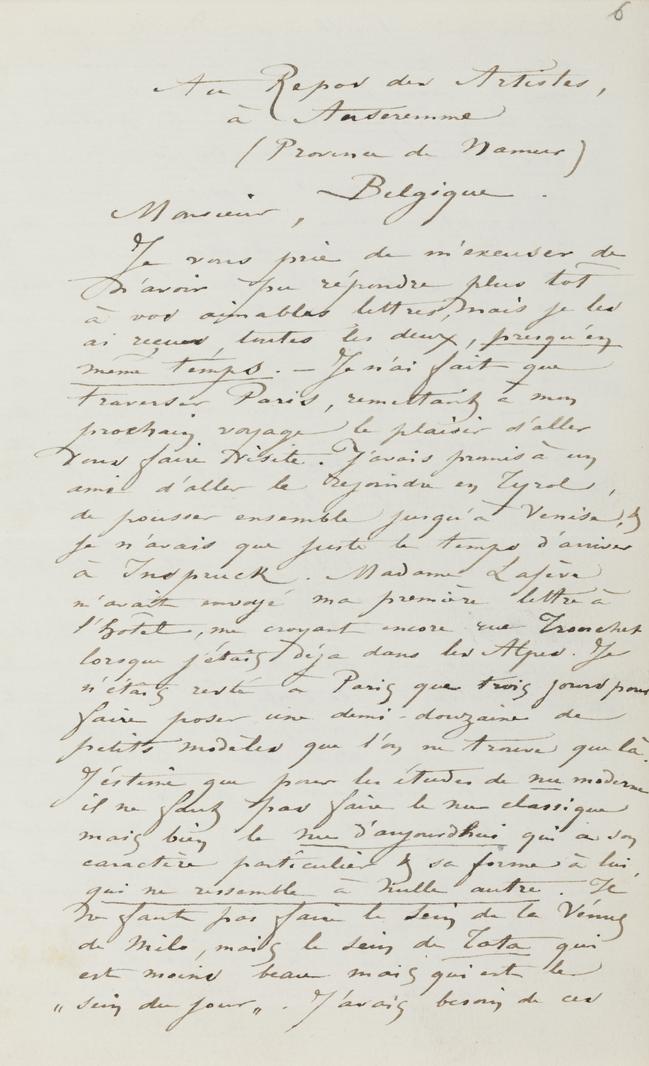 6
Au Repos des Artistes,
à Anseremme
(Province de Namur)
Belgique.
Monsieur,
Je vous prie de m'excuser de
n'avoir pu répondre plus tôt
à vos aimables lettres, mais je les
ai reçues, toutes les deux, presqu'en
même temps. — Je n'ai fait que
traverser Paris, remettant à mon
prochain voyage le plaisir d'aller
vous faire visite. J'avais promis à un
ami d'aller le rejoindre en Tyrol,
de pousser ensemble jusqu'à Venise, &
je n'avais que juste le temps d'arriver
à Inspruck. Madame
m'avait envoyé ma première lettre à
l'hôtel, me croyant encore rue Tronchet
lorsque j'étais déja dans les Alpes. Je
n'étais resté à Paris que trois jours pour
faire poser une demi-douzaine de
petits modèles que l'on ne trouve que là.
J'estime que pour les études de nu moderne
il ne faut pas faire le nu classique
mais bien le nu d'aujourdhui qui a son
caractère particulier & sa forme à lui,
qui ne ressemble à nulle autre. Il
ne faut pas faire le sein de la Vénus
de Milo, mais le sein de Tata qui
est moins beau mais qui est le
„sein du jour„. J'avais besoin de ces